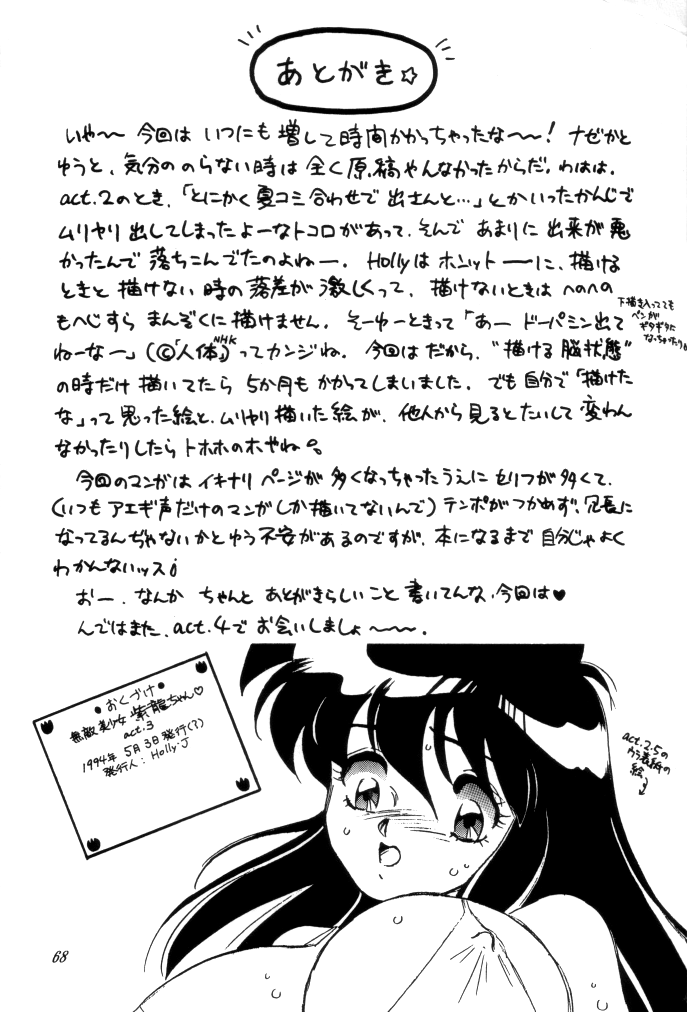 あとがき☆
いや〜〜 今回は いつにも 増して 時間 かかっちゃったな〜〜! ナゼかと
ゆうと、気分の のらない 時は 全く 原稿 やんなかったからだ。わはは。
act.2のとき、「とにかく 夏コミ 合わせで 出さんと…」とか いったかんじで
ムリヤリ 出して しまった よーな トコロ があって、そんで あまりに 出来が 悪
かったんで 落ちこんでたのよねー。 Hollyは ホニットーーに、描ける
ときと 描けない 時の 落差が 激しくって、描けないときは へのへの
もへじすら まんぞくに 描けません。そーゆーときって「あー ドーパミン出て
ねーなー」(©「人体」NHK)ってカンジね。 今回は だから、“描ける 脳状態”
の時だけ 描いてたら 5か月も かかってしまいました。でも自分で「描けた
な」って 思った絵と、ムリヤリ 描いた 絵が、他人から 見ると たいして 変わん
なかったりしたら トホホのホやね。
下描き入ってても
ペンが
ギタギタに
なっちゃったり
今回のマンガは イキナリ ページが 多くなっちゃったうえに せりフが多くて、
(いつも アエギ声だけのマンガしか 描いてないんで)テンポが つかめず、冗長に
なってるんぢゃないかと ゆう 不安が あるのですが、本になるまで 自分じゃよく
わかんないッス
おー、なんか ちゃんと あとがきらしい こと 書いてんな、今回は♥
んではまた、act.4で お会いしましょ〜〜〜。
●おくづけ●
無敵美少女 紫龍ちゃん♡
act.3
1994年 5月3日発行(?)
発行人:Holly.J
act.2.5の
ウラ表紙の
絵
68